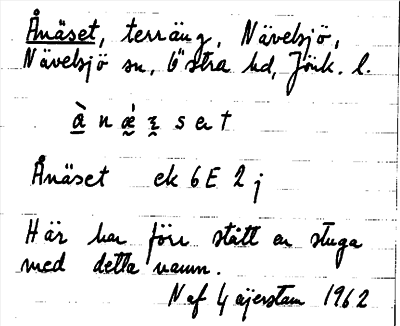 Ånäset, terräng, Nävelsjö,
Nävelsjö sn, Östra hd, Jönk. l.
Ånäset ek 6E 2j
Här har förr stått en stuga
med detta namn.
Naf Gäjerstam 1962